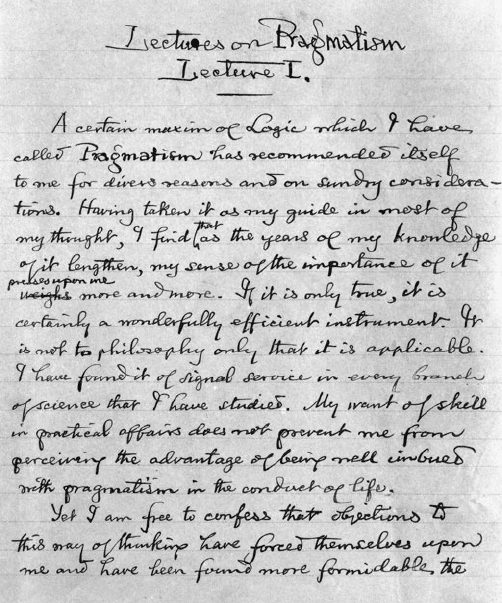 Lectures on Pragmatism
Lecture I.
A certain maxim of Logic which I have
called Pragmatism has recommended itself
to me for divers reasons and on sundry considera-
tions. Having taken it as my guide in most of
my thought, I find that as the years of my knowledge
of it lengthen, my sense of the importance of it
presses upon me
weighs more and more. If it is only true, it is
certainly a wonderfully efficient instrument. It
is not to philosophy only that it is applicable.
I have found it of signal service in every branch
of science that I have studied. My want of skill
in practical affairs does not prevent me from
perceiving the advantage of being well imbued
with pragmatism in the conduct of life.
Yet I am free to confess that objections to
this way of thinking have forced themselves upon
me and have been found more formidable the